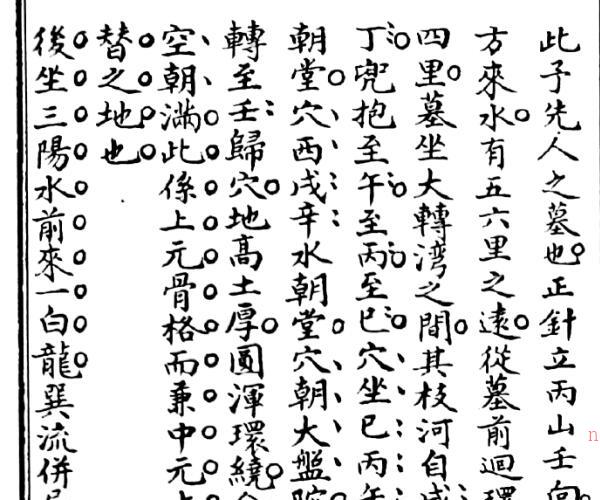 此子先人之墓也正針立丙山壬向
方來水有五六里之遠從墓前迴環
四里墓坐大轉湾之間其枝河自
丁兜抱至午至丙至巳穴坐巳丙午
朝堂穴西戌辛水朝堂穴朝大盤
轉至壬歸穴地髙土厚圓渾環繞
空朝滿此係上元骨格而兼中元
替之地也
後坐三陽水前來一白龍巽流併
n